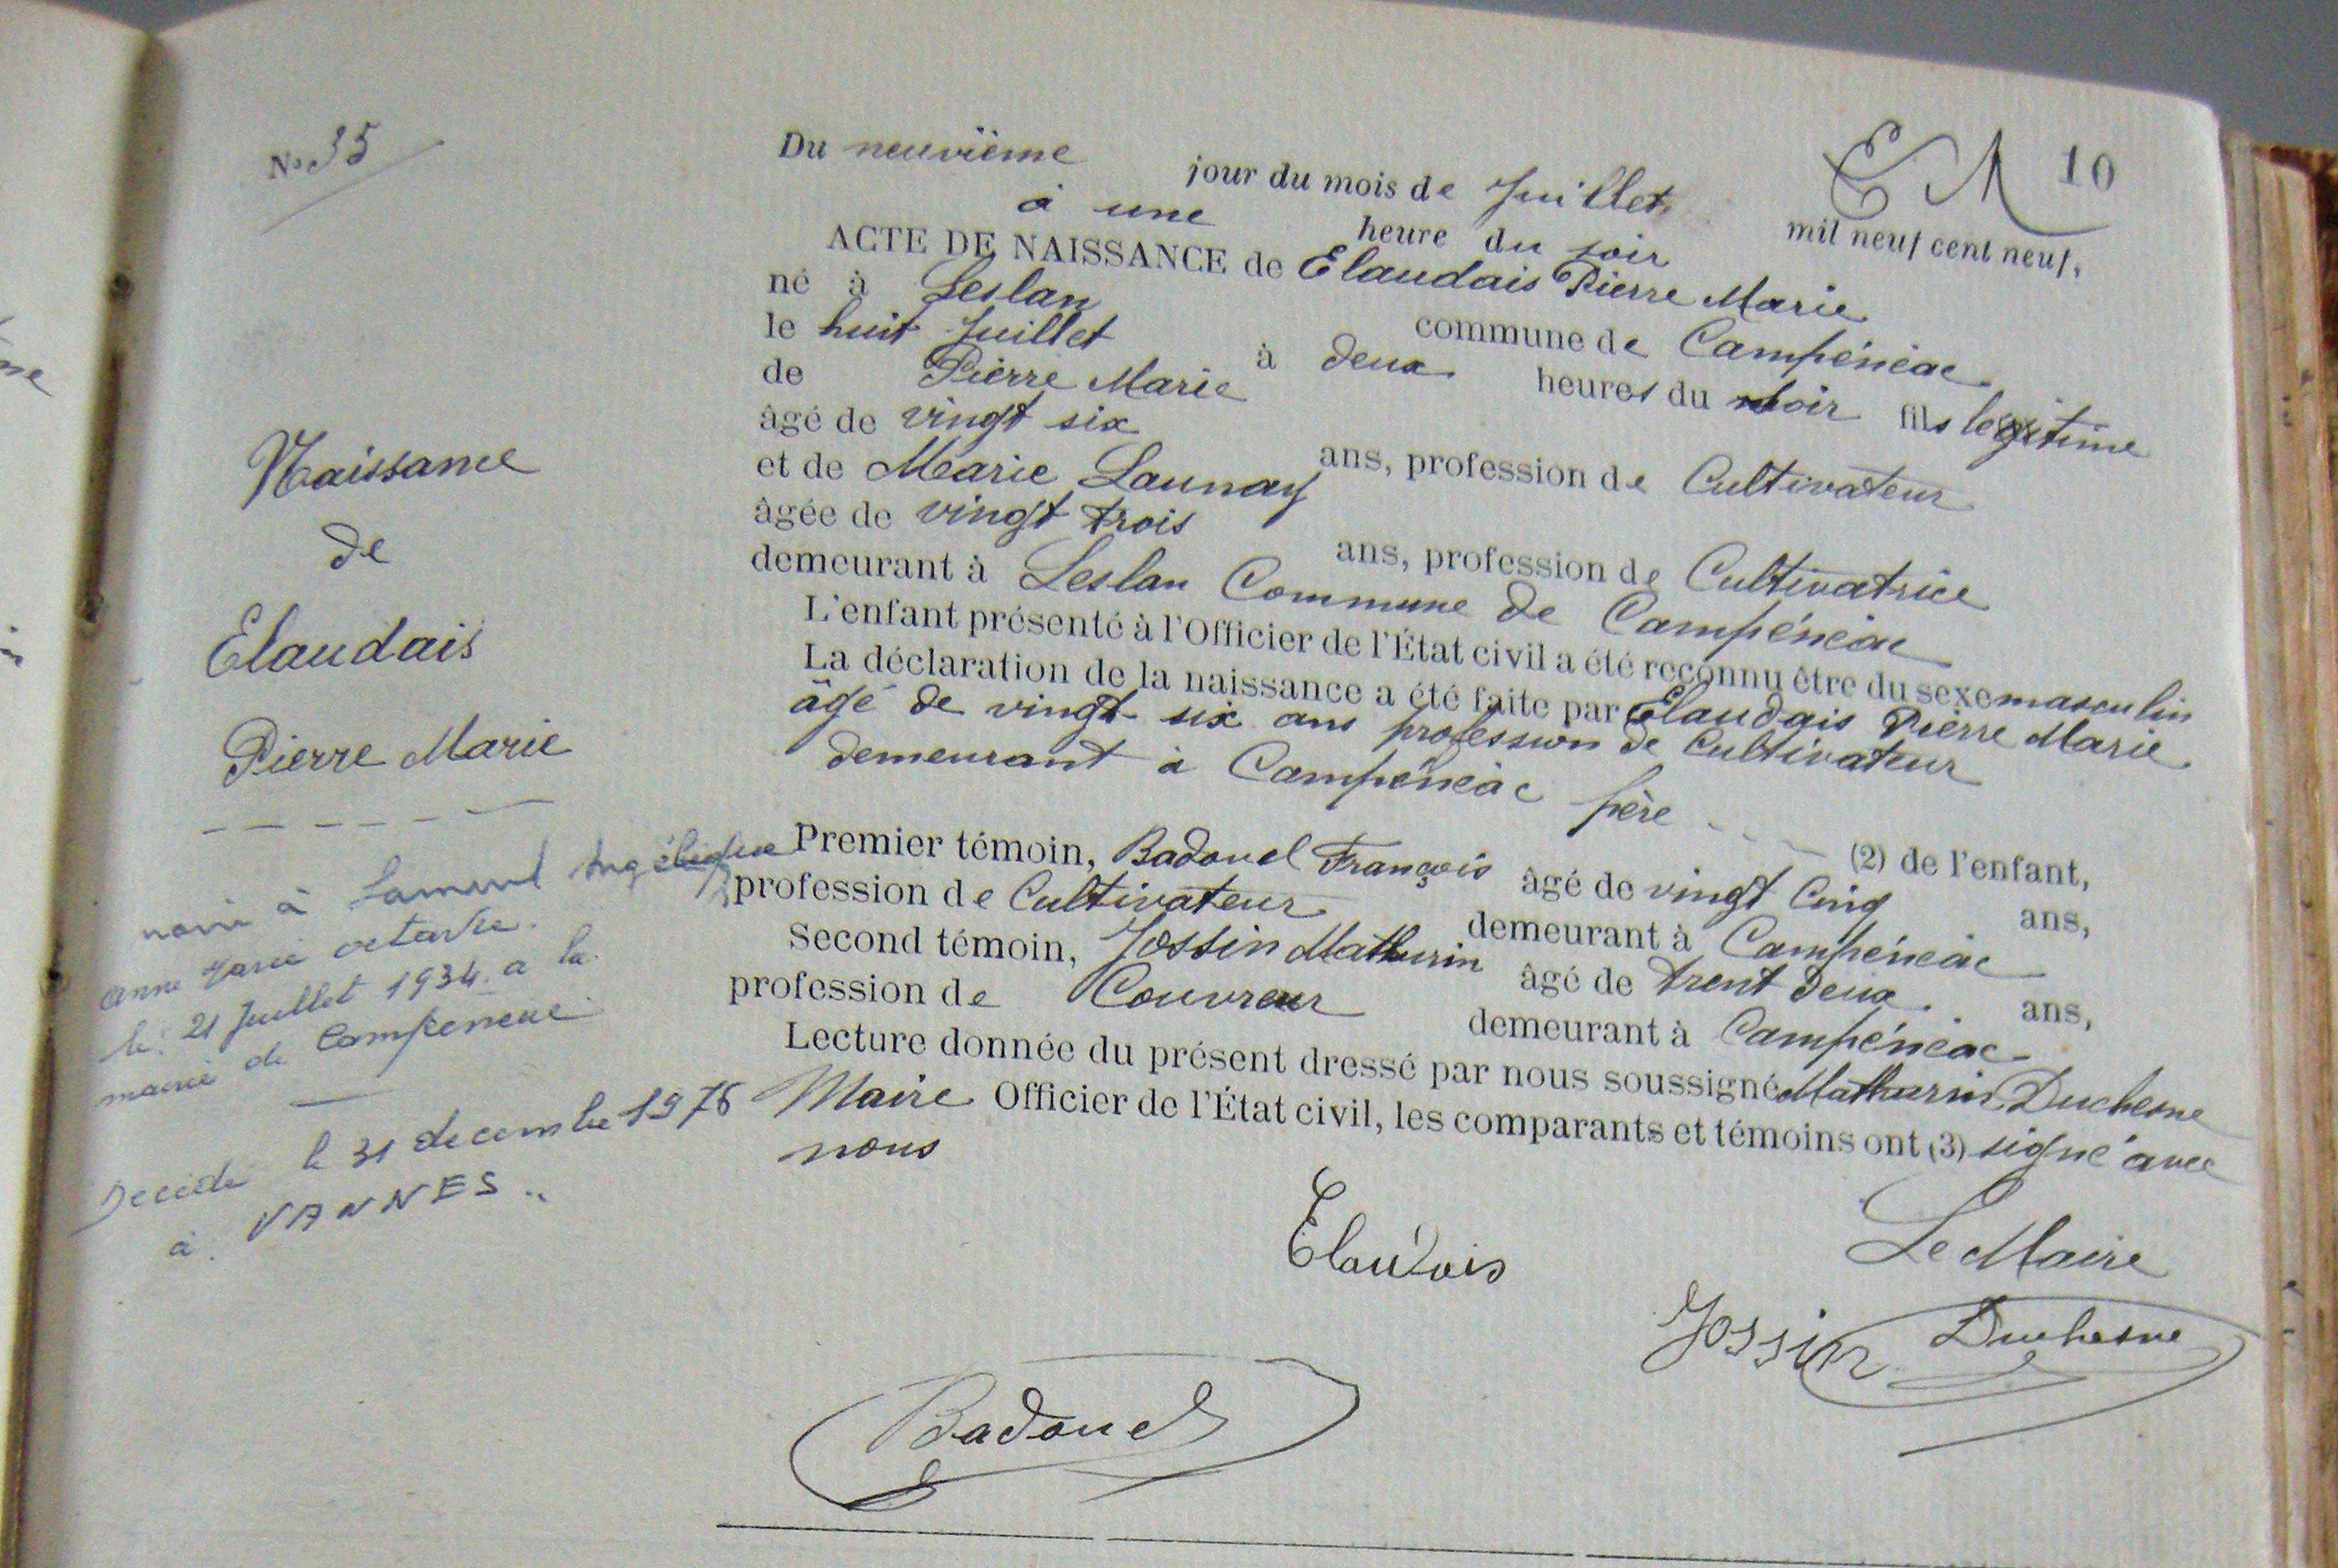 No 35
10
Du neuvième jour du mois de Juillet mil neuf cent neuf,
à une heure du soir
ACTE DE NAISSANCE de Elaudais Pierre Marie
né à Leslan commune de Campénéac
le huit Juillet à deux heures du soir fils légitime
de Pierre Marie
âgé de vingt six ans, profession de Cultivateur
et de Marie Launay
âgée de vingt trois ans, profession de Cultivatrice
demeurant à Leslan Commune de Campénéac
L'enfant présenté à l'Officier de l'État civil a été reconnu être du sexe masculin
La déclaration de la naissance a été faite par Elaudais Pierre Marie
âgé de vingt-six ans profession de Cultivateur
demeurant à Campénéac père (2) de l'enfant,
Premier témoin, Badouel François âgé de vingt Cinq ans,
profession de Cultivateur demeurant à Campénéac
Second témoin, Jossin Mathurin âgé de trent deux ans,
profession de Couvreur demeurant à Campénéac
Lecture donnée du présent dressé par nous soussigné Mathurin Duchesne
Maire Officier de l'État civil, les comparants et témoins ont (3) signé avec
nous
Naissance
de
Elaudais
Pierre Marie
à Angélique
anne Marie octavie.
le 21 Juillet 1934 a la
mairie de Campeneac
Décédé le 31 decembre 1976
à VANNES
Elaudais
Le Maire
Jossin
Duchesne
Badouel